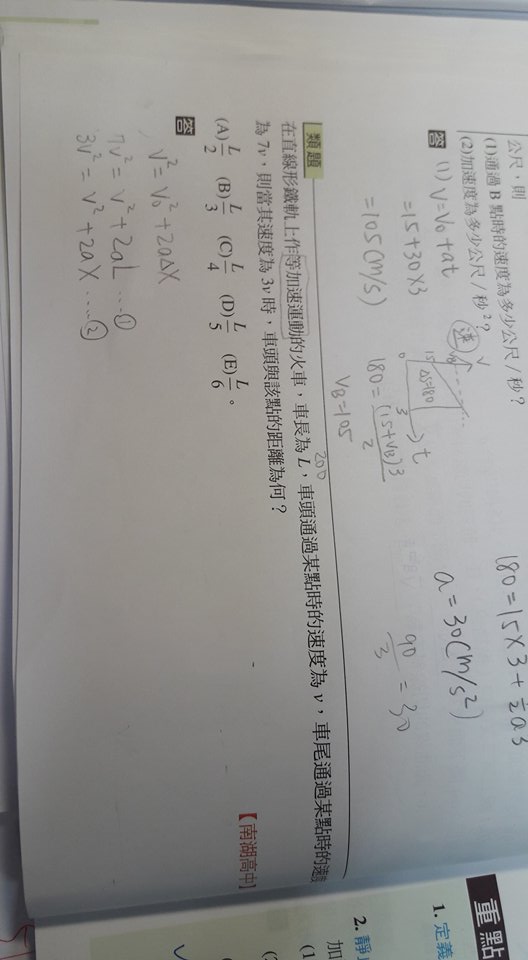 公尺,則
(1)通過 B 點時的速度為多少公尺/秒?
(2)加速度為多少公尺/秒²?
答 (1) V=V₀+at
=15+30×3
=105(m/s)
速
V
15
ΔS=180
0
3
t
180=(15+VB)3/2
VB=105
180=15×3+½a3
a=30(m/s²)
90/3=30
類題
200
在直線形鐵軌上作等加速運動的火車,車長為 L,車頭通過某點時的速度為 v,車尾通過某點時的速度
為 7v,則當其速度為 3v 時,車頭與該點的距離為何?
【南湖高中】
(A) L/2 (B) L/3 (C) L/4 (D) L/5 (E) L/6。
答
V²=V₀²+2aΔX
7v²=v²+2aL……①
3v²=v²+2aX……②
重點
1. 定義
2. 靜
加
(1
(2